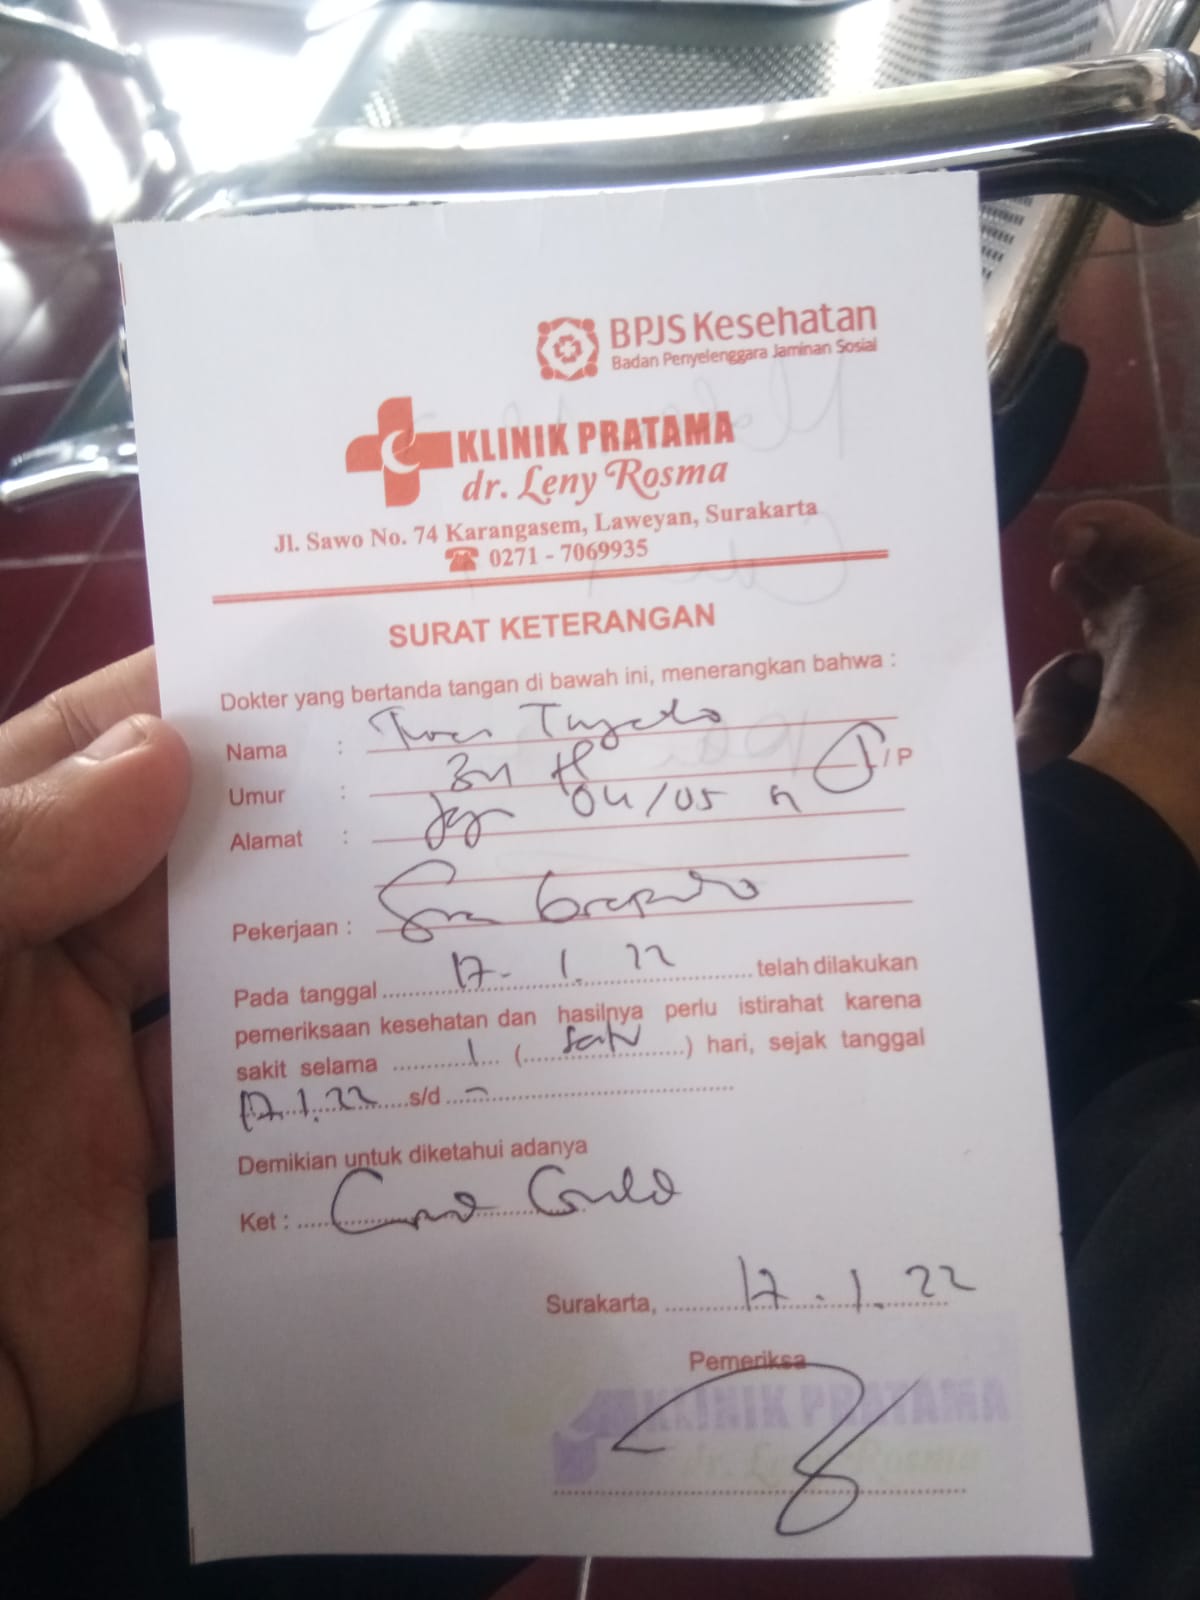 BPJS Kesehatan
Badan Penyelenggara Jaminan Sosial
KLINIK PRATAMA
dr. Leny Rosma
Jl. Sawo No. 74 Karangasem, Laweyan, Surakarta
☎ 0271 - 7069935
SURAT KETERANGAN
Dokter yang bertanda tangan di bawah ini, menerangkan bahwa :
Nama :
Umur : 34 L / P
Alamat : 04/05
Pekerjaan :
Pada tanggal 17. 1. 22 telah dilakukan
pemeriksaan kesehatan dan hasilnya perlu istirahat karena
sakit selama 1 (satu) hari, sejak tanggal
17.1.22 s/d -
Demikian untuk diketahui adanya
Ket :
Surakarta, 17.1.22
Pemeriksa
KLINIK PRATAMA
dr. Leny Rosma